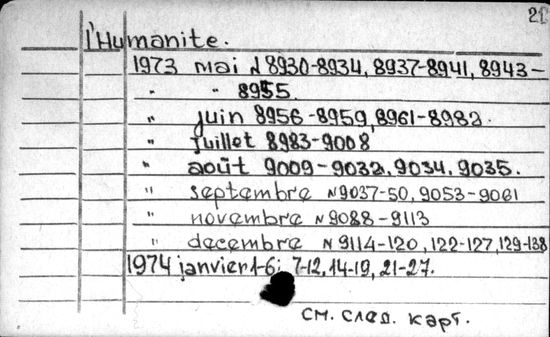 21
l'Humanite.
1973 mai N 8930-8934, 8937-8941, 8943-
" " 8955.
" juin 8956-8959, 8961-8982.
" juillet 8983-9008
" août 9009-9032, 9034, 9035.
" septembre N 9037-50, 9053-9061
" novembre N 9088-9113
" decembre N 9114-120, 122-127, 129-138
1974 janvier 1-6; 7-12, 14-19, 21-27.
см. след. карт.